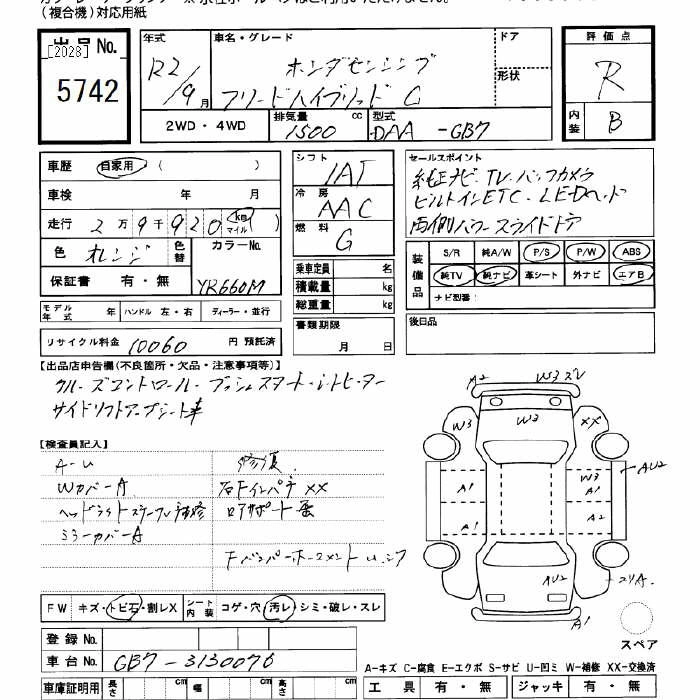 (複合機)対応用紙
出品No.
[2028]
5742
年式
R2/9月
車名・グレード
ホンダセンシング
フリードハイブリッド G
ドア
形状
評価点
R
内装
B
2WD・4WD
排気量
1500
cc
型式
DAA -GB7
車歴
自家用
(
)
車検
年
月
走行
2万9千920
km
マイル
( )
色
オレンジ
色替
カラーNo.
YR660M
保証書
有・無
シフト
IAT
冷房
AAC
燃料
G
乗車定員
名
積載量
kg
総重量
kg
書類期限
月
日
セールスポイント
純正ナビ、TV、バックカメラ
ビルトインETC・LEDヘッド
両側パワースライドドア
装備品
S/R
純A/W
P/S
P/W
ABS
純TV
純ナビ
革シート
外ナビ
エアB
ナビ型番:
後日品
モデル年式
年
ハンドル
左・右
ディーラー・並行
リサイクル料金
10060
円
預託済
【出品店申告欄(不良箇所・欠品・注意事項等)】
クルーズコントロール・プッシュスタート・シートヒーター
サイドリフトアップシート車
【検査員記入】
A-U
修復
WカバーA
右Fインパネ XX
ミラーカバーA
ロアサポート歪
A2
W3
W3
XX
W2
A1
W3
A1
AU2
A1
A2
AU2
A1
FW
キズ・トビ石・割レX
シート内装
コゲ・穴・汚レ・シミ・破レ・スレ
スペア
登録No.
車台No.
GB7-3130076
A-キズ C-腐食 E-エクボ S-サビ U-凹ミ W-補修 XX-交換済
車庫証明用
長さ
cm
幅
cm
高さ
cm
工具
有・無
ジャッキ
有・無